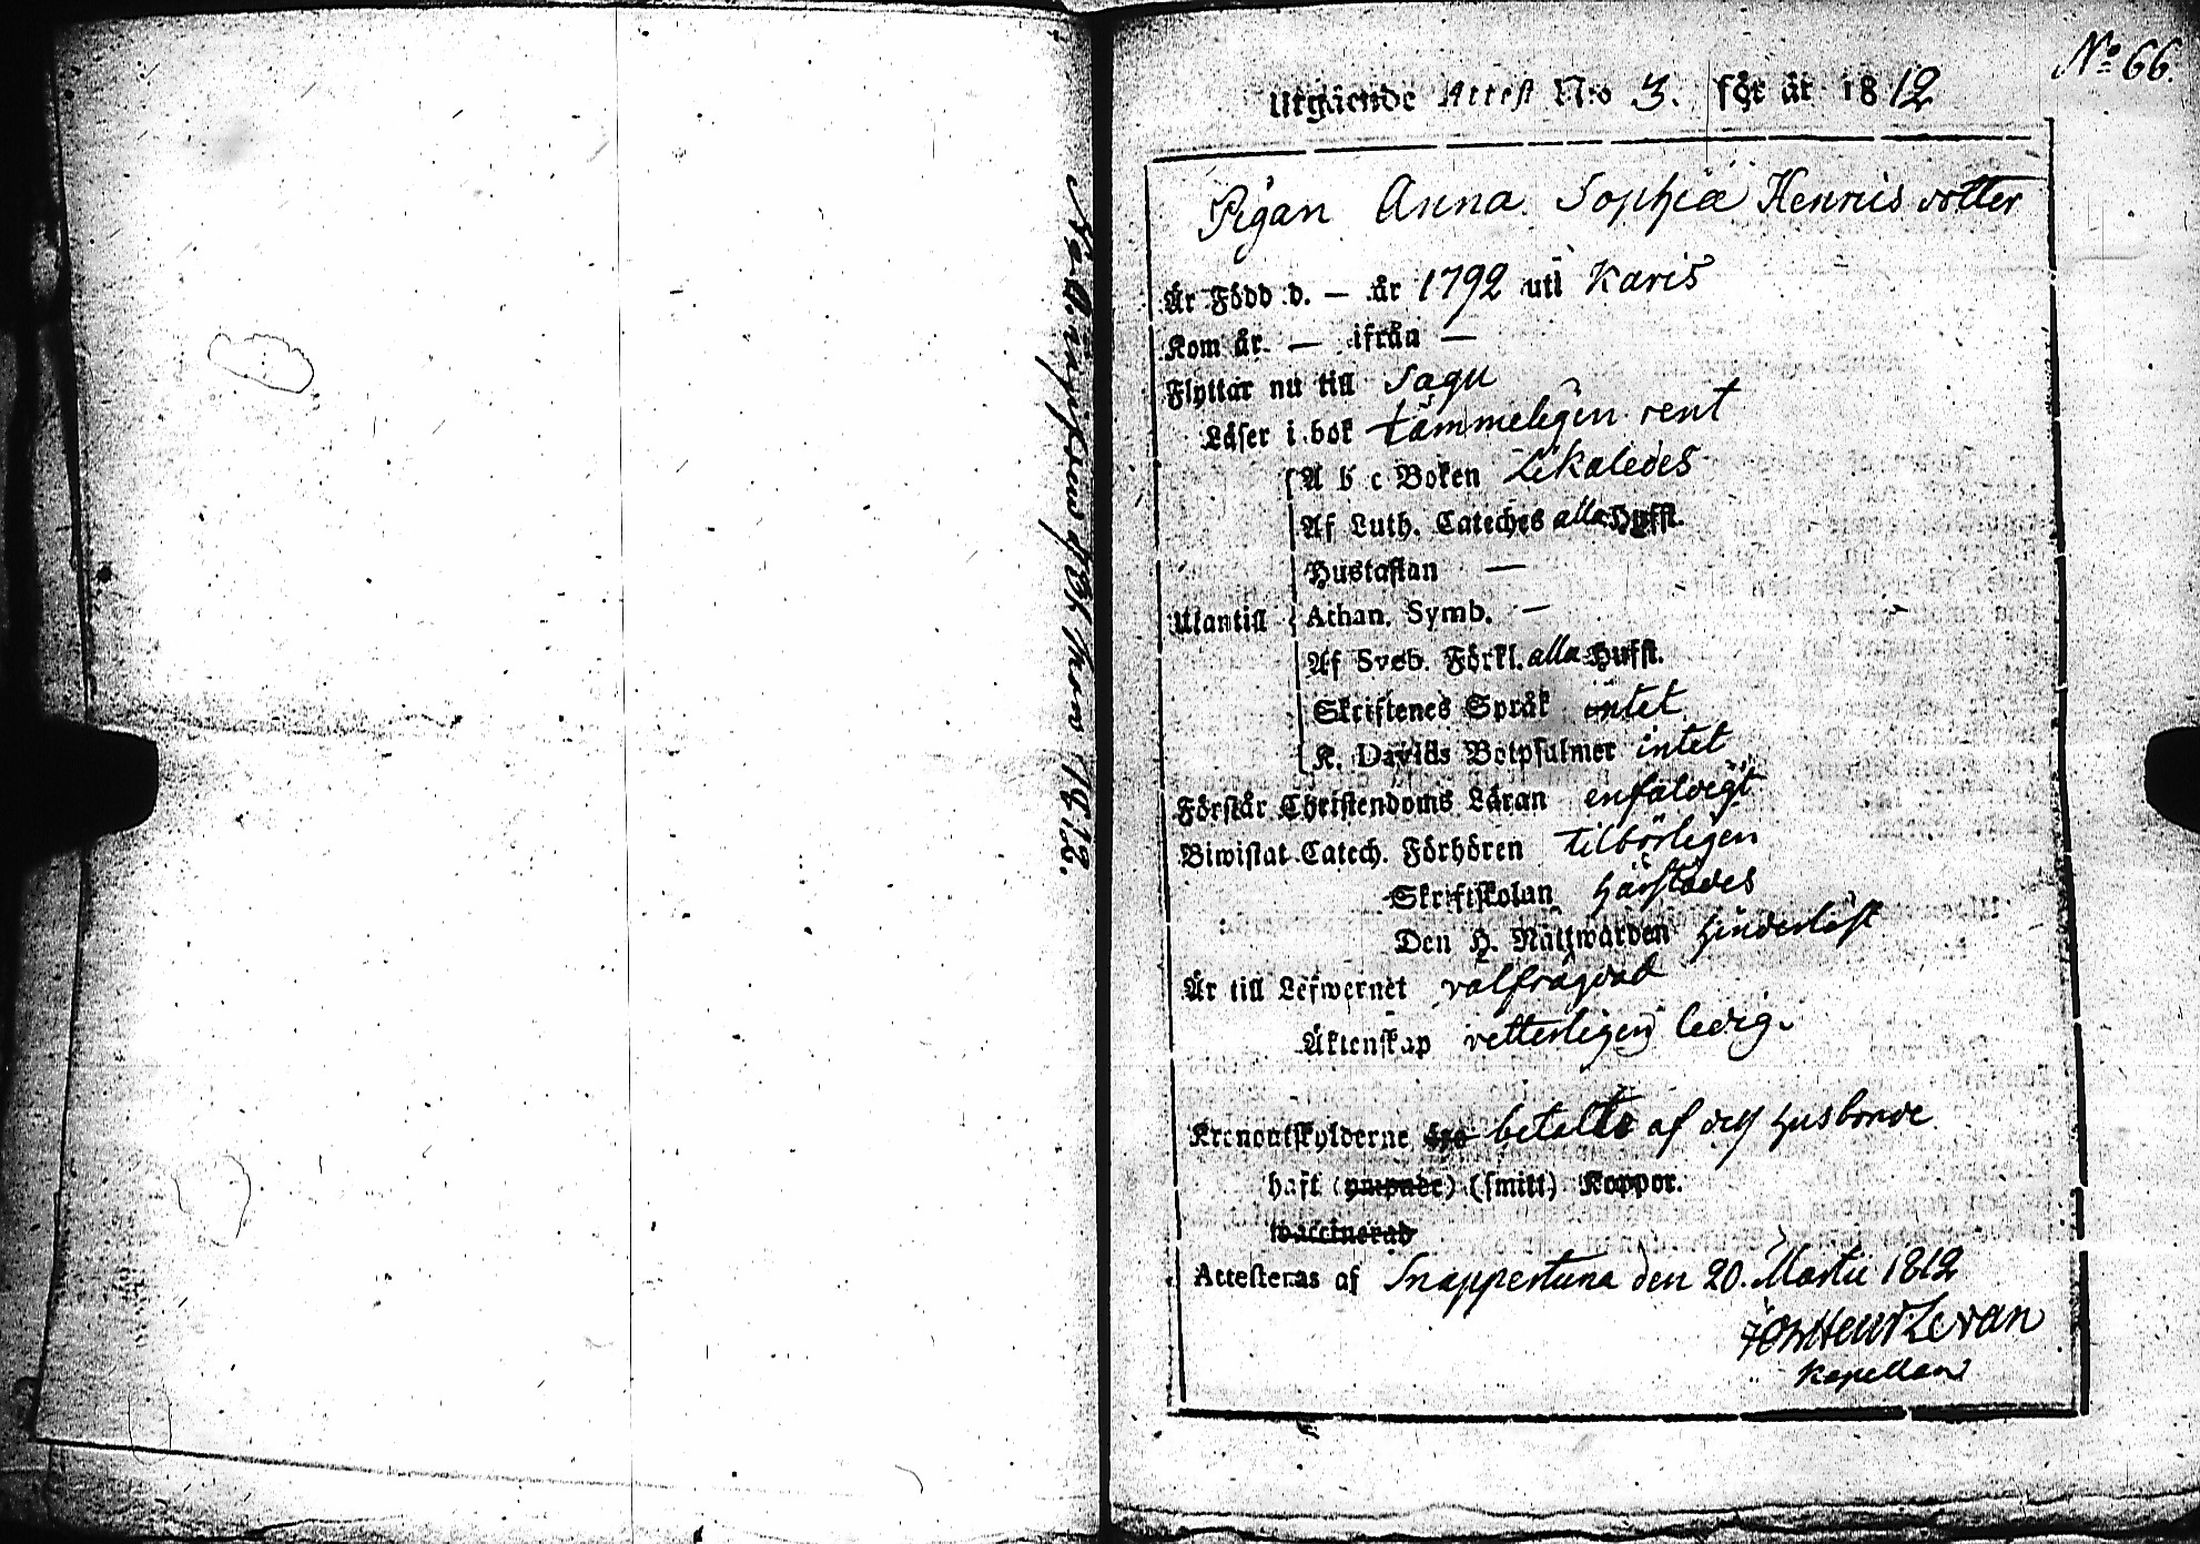 No 66.
Utgående Attest N:o 3. för år 1812
Pigan Anna Sophia Henricsdotter
Är Född d. — år 1792 uti Karis
Kom år — ifrån —
Flyttar nu till Sagu
Läser i bok tämmeligen rent
A b c Boken Likaledes
Af Luth. Cateches alla Hufst.
Hustaflan —
Utantill Athan. Symb. —
Af Sveb. Förkl. alla Hufst.
Skriftenes Språk intet
K. Davids Botpsalmer intet
Förstår Christendoms Läran enfaldigt
Biwistat Catech. Förhören tilbörligen
Skriftskolan härstädes
Den H. Nattwarden hinderlöst
Är till Lefwernet välfrägdad
Äktenskap retterligen ledig.
Kronoutskylderne äro betalte af dess husbonde
haft (ympade) (smitt) Koppor.
waccinerad
Attesteras af Snappertuna den 20. Martii 1812
Levan
Kapellan
1812.